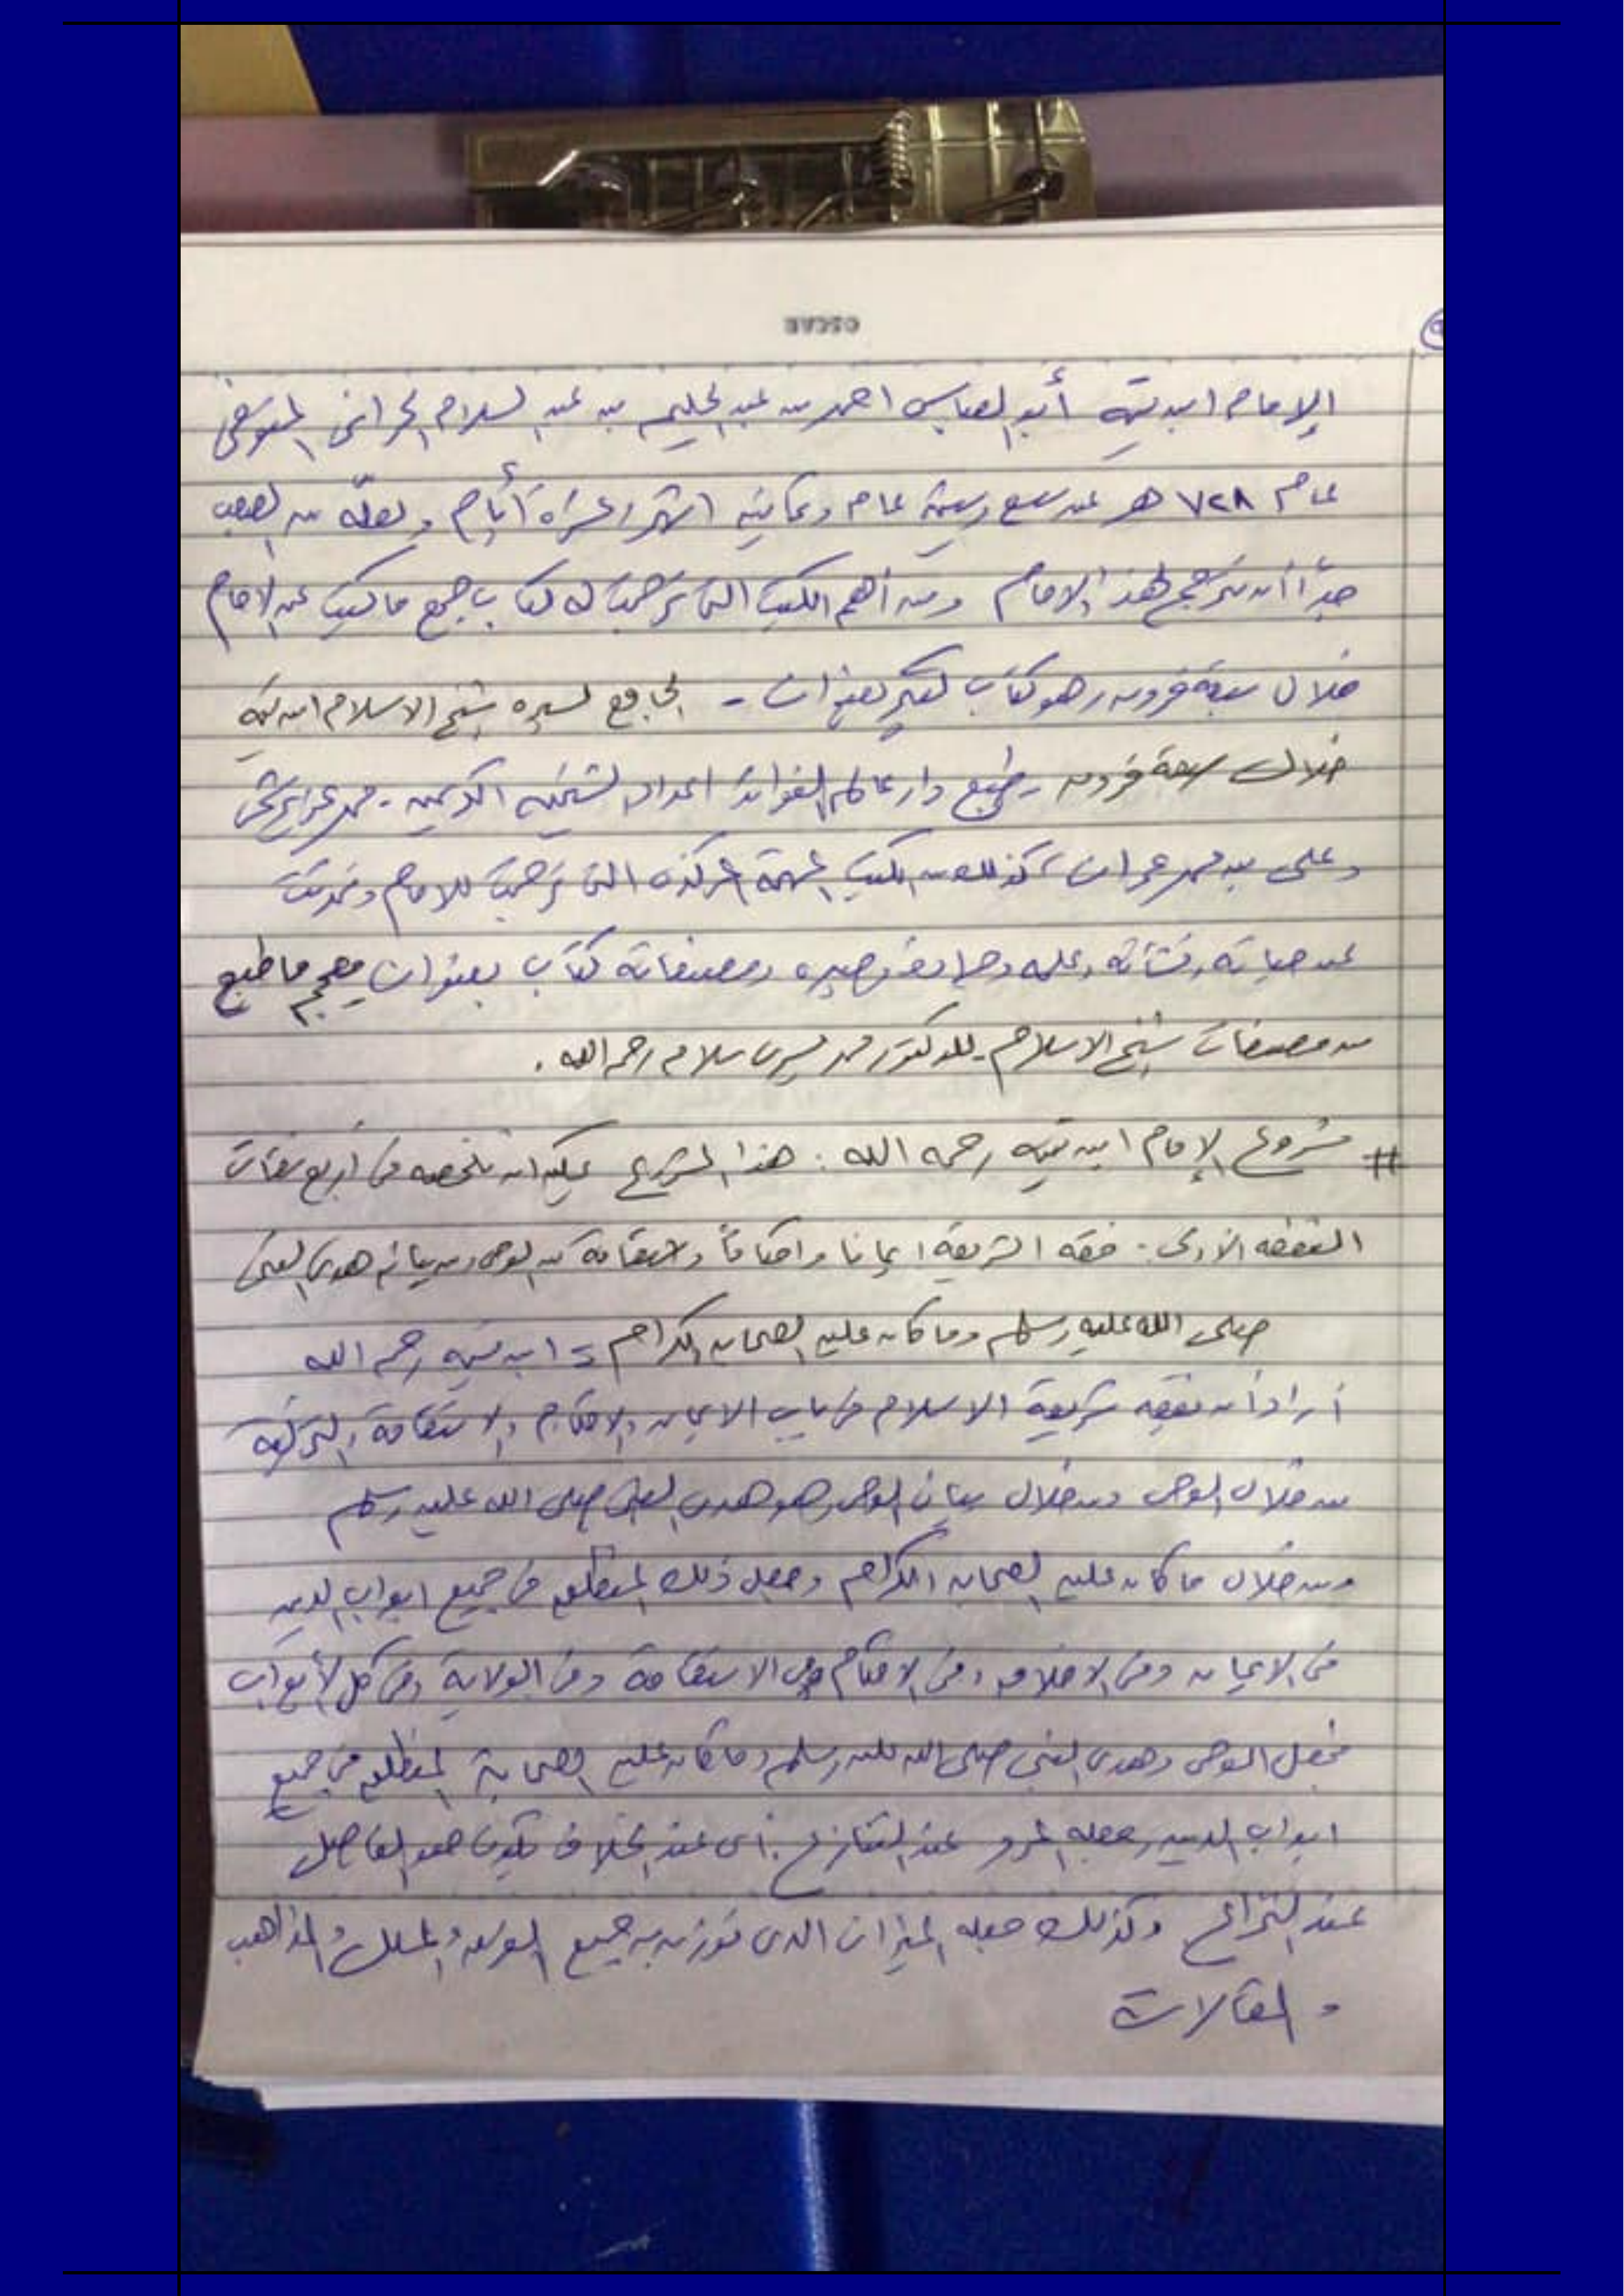 الإمام ابن تيمية أبو العباس احمد بن عبد الحليم بن عبد السلام الحراني المتوفى
عام ٧٢٨ هـ عن سبع وستين عام وثمانية اشهر وعشرة أيام ولعله من الصعب
جداً أن نترجم لهذا الامام ومن أهم الكتب التي ترجمت له كتاب جمع ما كتب عن الامام
خلال سبعة قرون وهو كتاب كبير بعنوان - الجامع لسيره شيخ الاسلام ابن تيمية
خلال سبعة قرون - طبع دار عالم الفوائد اعداد الشيخين الكريمين - محمد عزير شمس
وعلى بن محمد عمران، كذلك من الكتب المهمة المركزه التي ترجمت للامام وتحدثت
عن حياته ونشأته وعلمه وجهاده وصبره ومصنفاته كتاب بعنوان معجم ما طبع
من مصنفات شيخ الاسلام - للدكتور محمد يسرى سلامه رحمه الله .
# مشروع الإمام ابن تيمية رحمه الله : هذا المشروع يمكن ان نلخصه في أربع نقاط
النقطه الأولى : فقه الشريعة ايمانا واحكاماً واستقامة من الوحى ومن بيانه هدى النبي
صلى الله عليه وسلم وما كان عليه الصحابه الكرام = ابن تيميه رحمه الله
أراد أن نفقه شريعة الاسلام من باب الايمان والاحكام والاستقامة والتزكية
من خلال الوحى ومن خلال بيان الوحى وهو هدى النبي صلى الله عليه وسلم
ومن خلال ما كان عليه الصحابه الكرام وجعل ذلك المنطلق في جميع ابواب الدين
في الايمان وفي الاخلاق وفي الاحكام وفي الاستقامة وفي الولاية وفي كل الأبواب
فجعل الوحى وهدى النبي صلى الله عليه وسلم وما كان عليه الصحابة المنطلق في جميع
ابواب الدين وجعله المرد عند التنازع . أى عند الخلاف يكون هو الفاصل
عند النزاع وكذلك جعله الميزان الذى توزن به جميع الفرق والملل والمذاهب
والمقالات